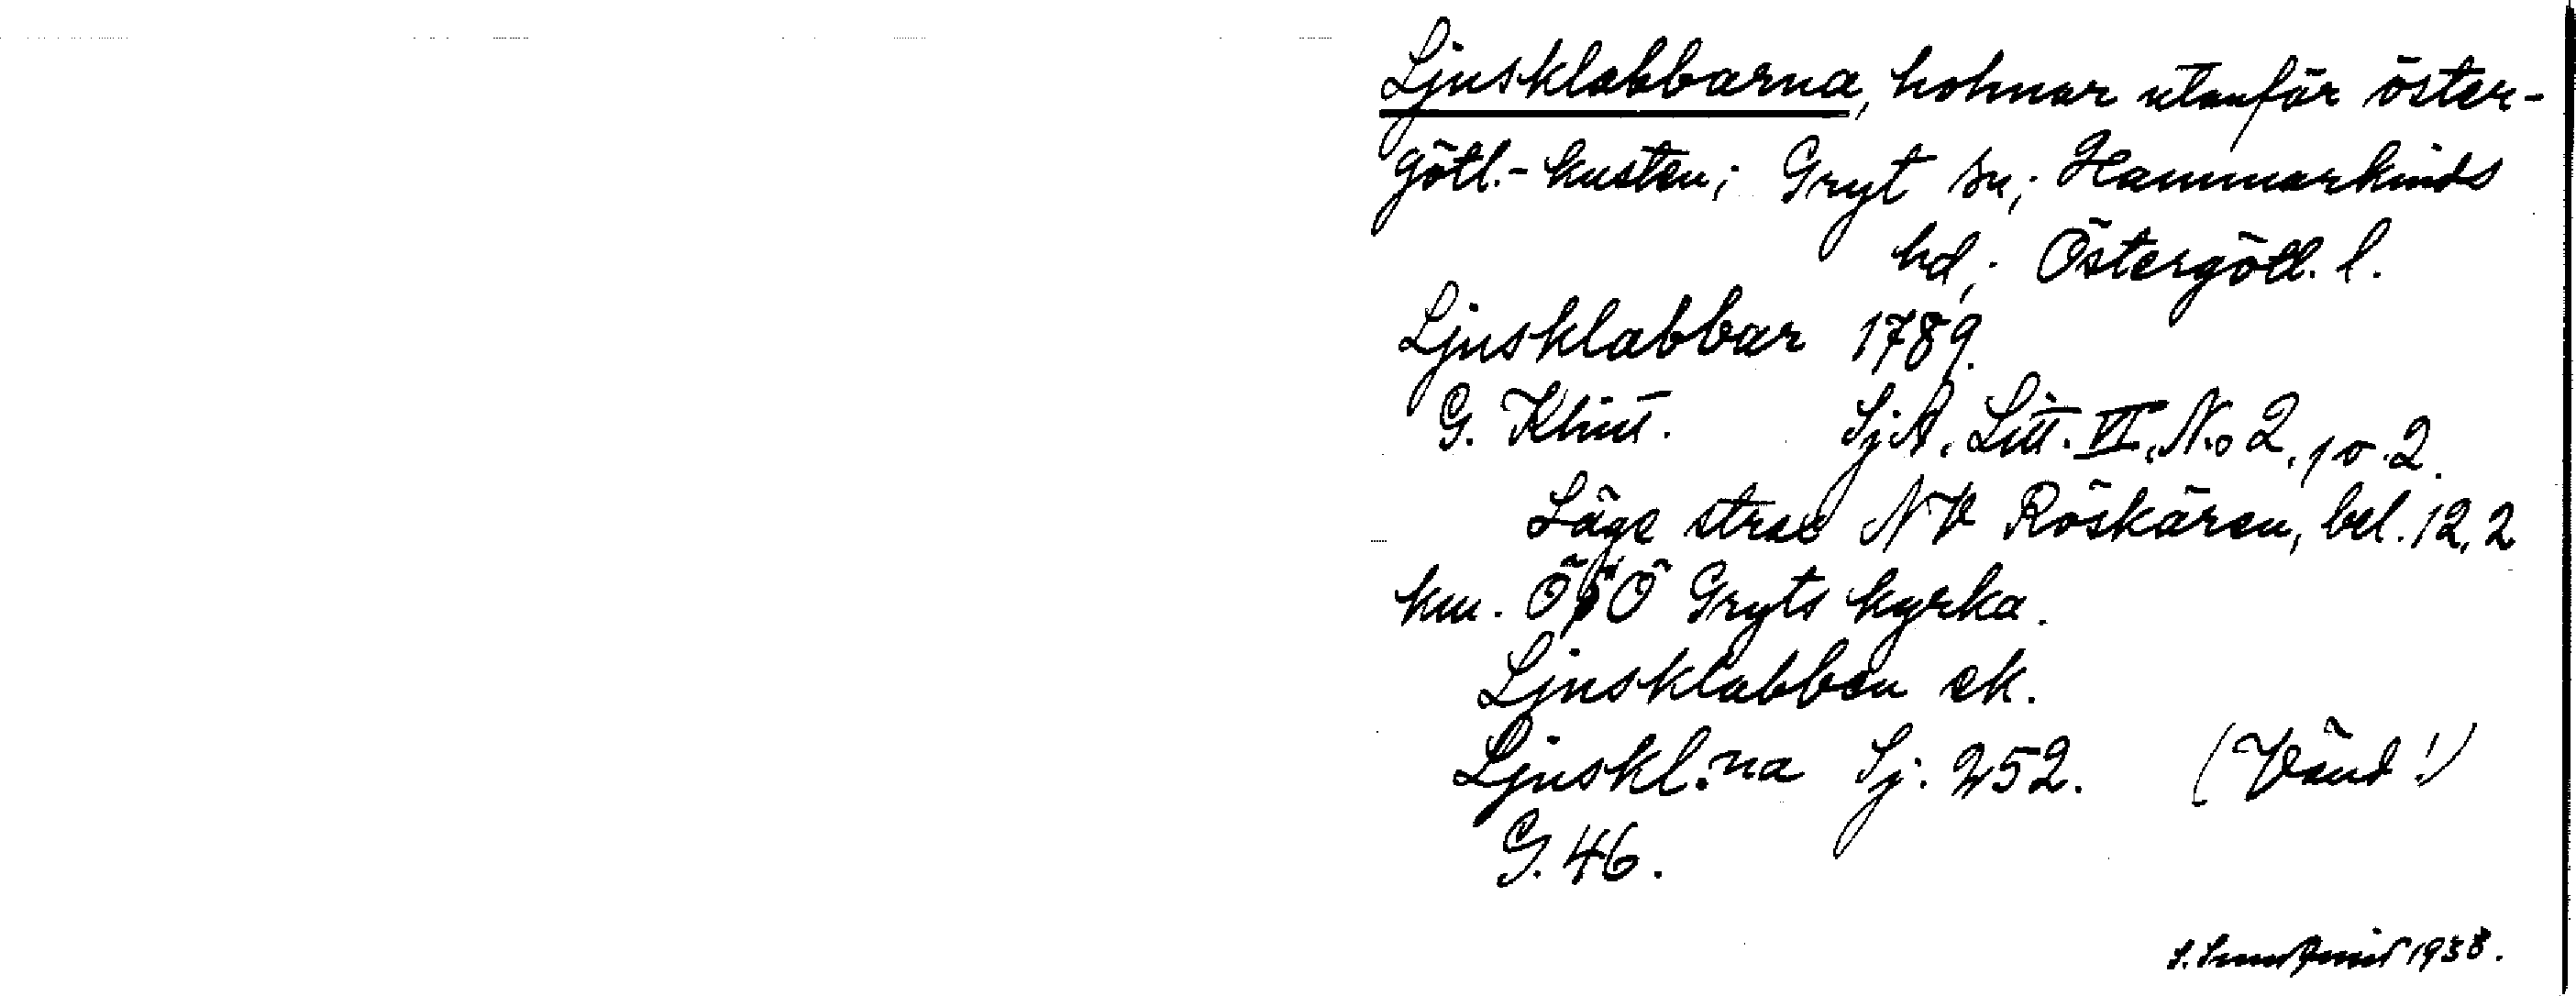 Ljusklabbarna, holmar utanför öster-
götl.-kusten; Gryt sn; Hammarkinds
hd; Östergötl. l.
Ljusklabbar 1789.
G. Klint. SjA. Litt. VI, No 2, 10.2.
Läge strax NV Röskären, bel. 12,2
km. ÖSÖ Gryts kyrka.
Ljusklabben ek.
Ljuskl:na Sj. 252. (Vänd!)
G. 46.
1938.